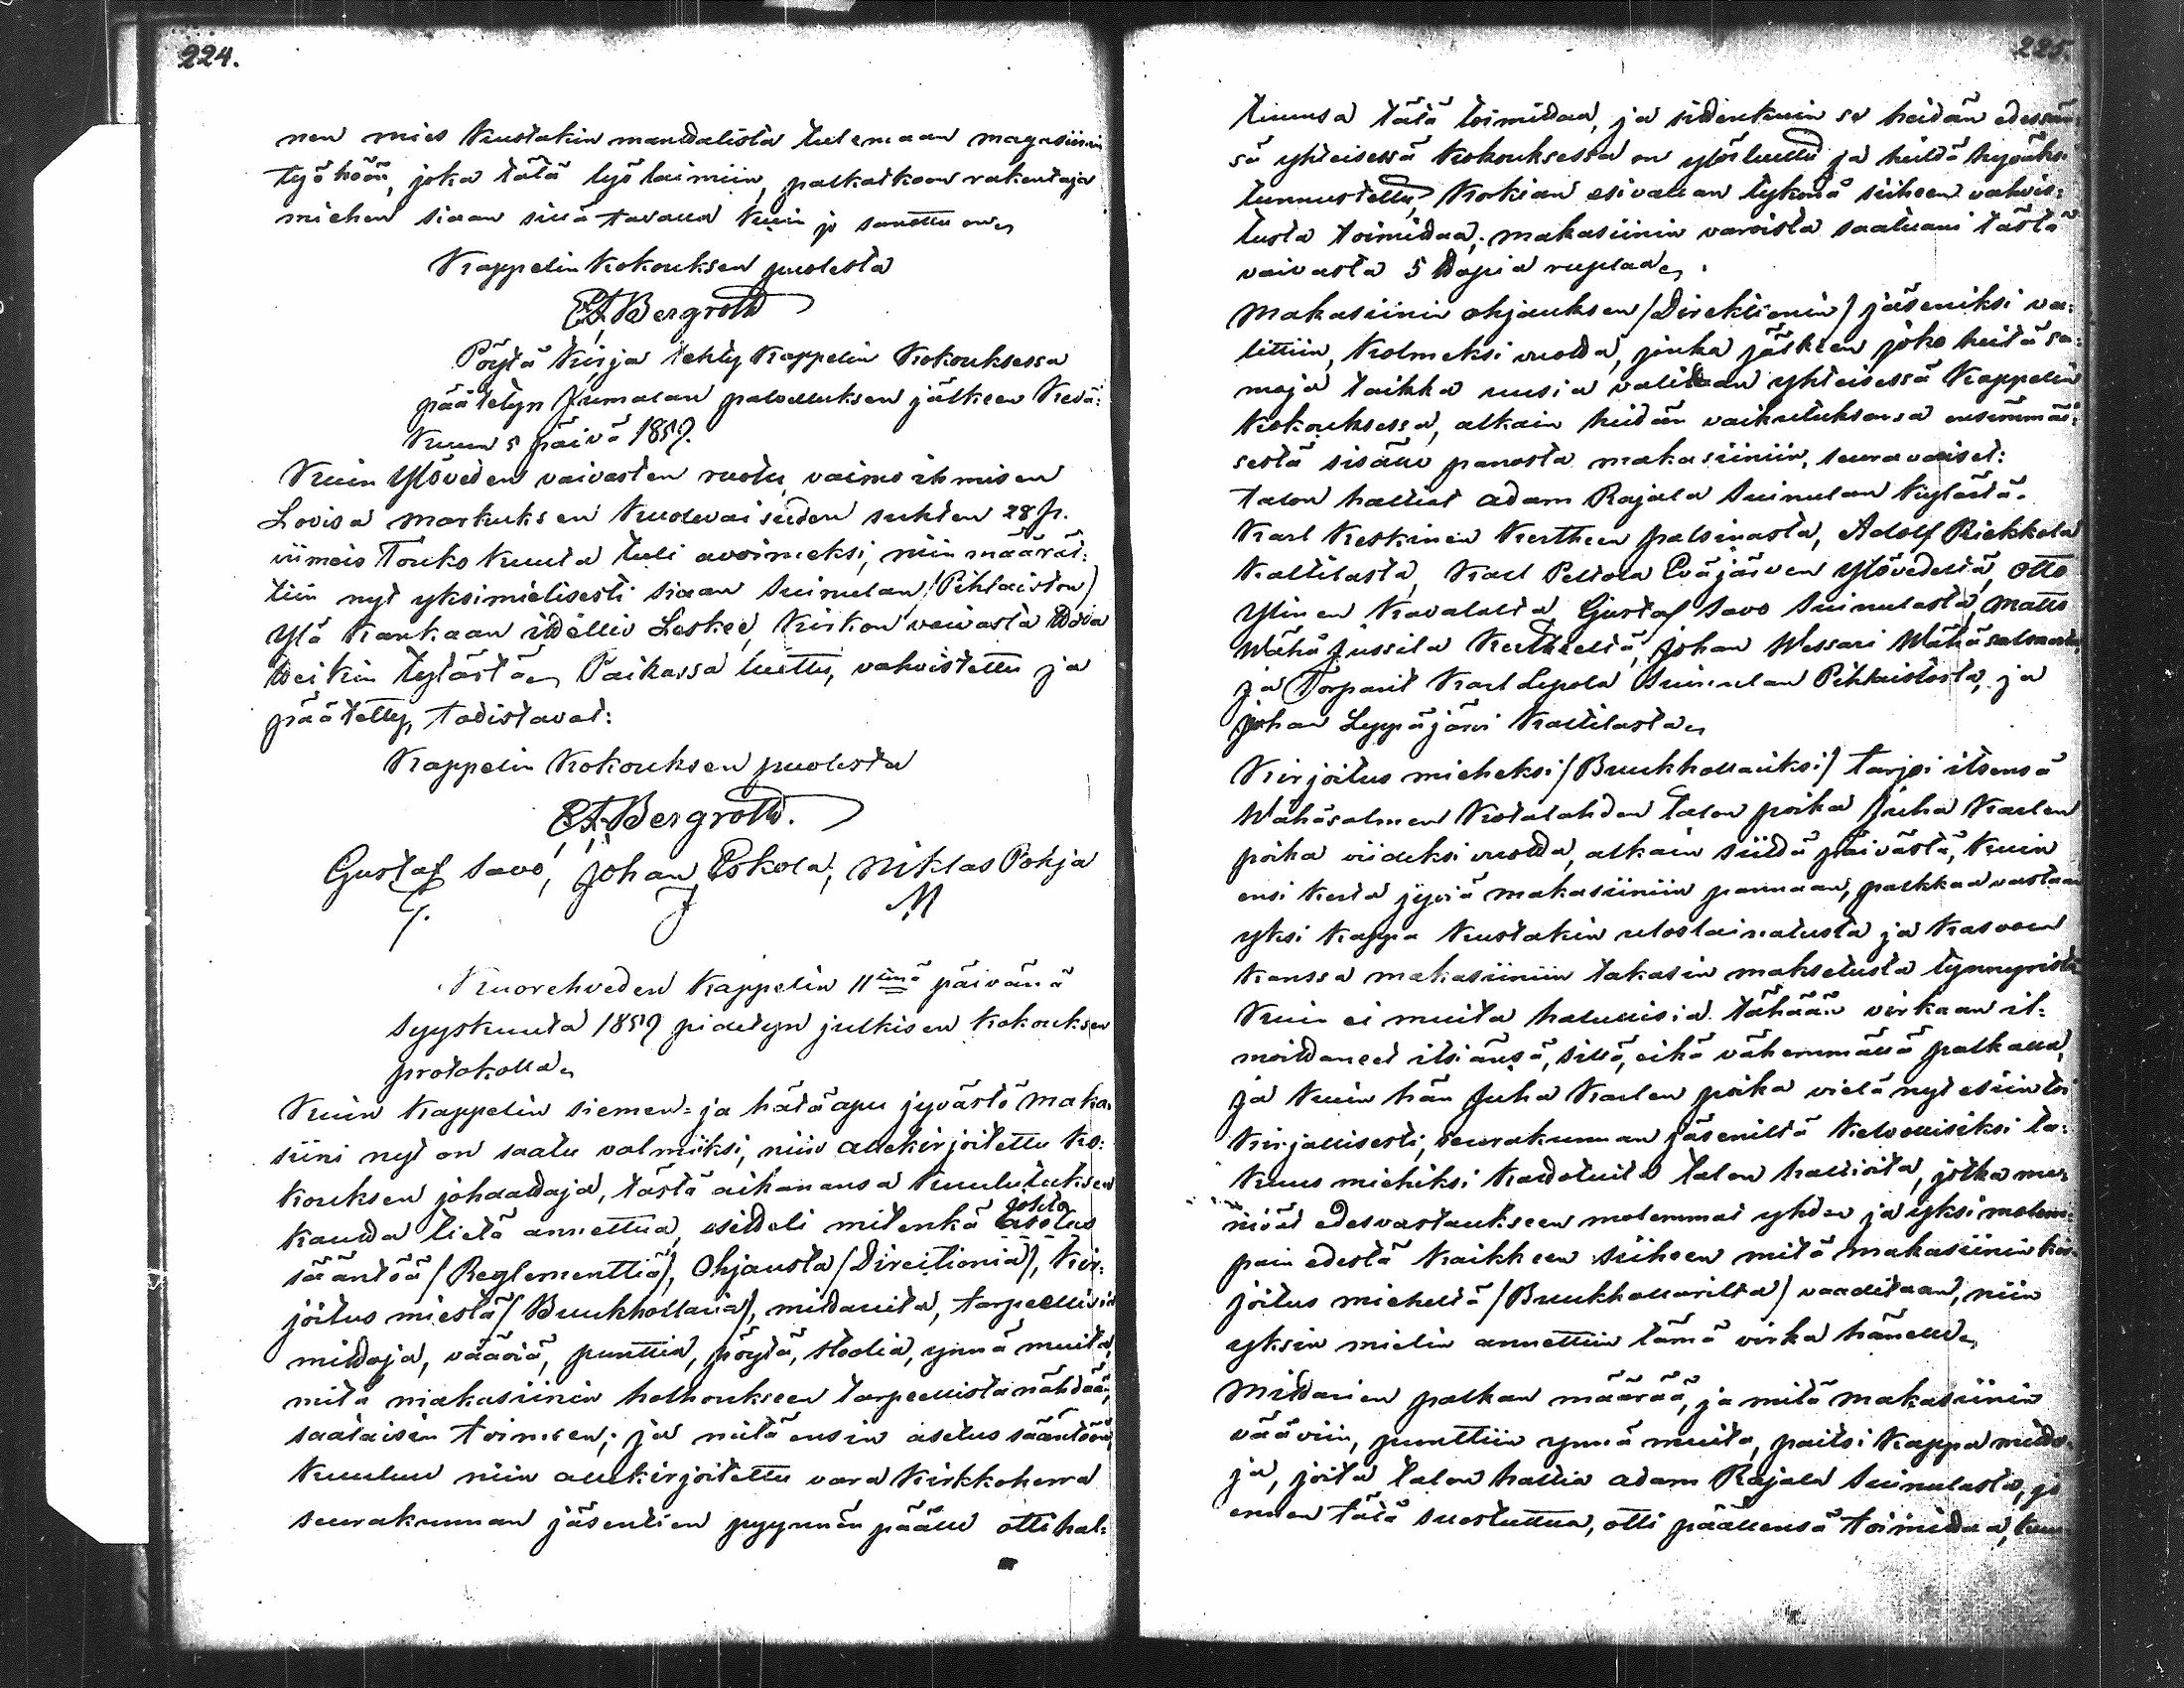 224.
nen mies kustakin manttalista tulemaan magasiinin
työhöön, joka tätä lyö laimiin, palkatkoon rakentaja
miehen siaan sillä tavalla kuin jo sanottu on,
Kappelin Kokouksen puolesta
E A Bergroth
Pöytä kirja tehty Kappelin Kokouksessa
päätetyn Jumalan palvelluksen jälkeen Kesä=
kuun 5 päivä 1859.
Kuin Ylöveden vaivasten ruotu, vaimo ihmisen
Lovisa Markuksen kuolevaisuden suhten 28 p.
viimeis Touko kuuta tuli avoimeksi, niin määrät=
tiin nyt yksimielisesti siaan Suinulan (Pihlaiston)
Ylä Kankaan itsellis Leskei, Kirkon vaivasta
Heikin tytärtä, Paikassa luettu, vahvistettu ja
päätetty, todistavat:
Kappelin Kokouksen puolesta
E A Bergroth.
Gustaf Savo, Johan Eskola, Niklas Pohja
G. J M
Kuorehveden Kappelin 11 tenä päivänä
Syyskuuta 1859 pidetyn julkisen Kokouksen
protokolla,
Kuin Kappelin siemen= ja hätäapu jyvästö maka=
siini nyt on saatu valmiiksi, niin allekirjoitettu Ko=
kouksen johdattaja, tästä aikanansa kuulutuksen
kautta tietä annettua, esitteli mitenkä asetus
Johto
sääntöä (Reglementtiä), Ohjausta (Direitionia), Kir=
joitus miestä (Buukhollaria), mittarita, tarpeellisia
mittoja, vääviä, punttia, pöytä, stoolia, ynnä muita,
mitä makasiinin holhoukseen tarpeellista nähdään,
saataisin toimeen; ja mitä ensin asetus sääntöön,
kuuluu niin allekirjoitettu vara Kirkkoherra
seurakunnan jäsentien pyynnön päälle otti hal=
225.
tuunsa tätä toimittaa, ja sittenkuin se heidän edessän=
sä yhteisessä Kokouksessa on ylösluettu ja heiltä hyväksi
tunnustettu, Korkian esivallan tykönä siiheen vahvis=
tusta toimittaa; makasiinin varoista saatuani tästä
vaivasta 5 hopia ruplaa,
Makasiinin ohjauksen (Direktionin) jäseniksi va=
littiin, kolmeksi vuotta, jonka jälkeen joko heitä sa=
moja taikka uusia valitaan yhteisessä Kappelin
Kokouksessa, alkain heidän vaikutuksensa ensimmäi=
sestä sisälle panosta makasiiniin, seuravaiset:
talon halliat Adam Rajala Suinulan kylästä.
Karl Keskinen Kertheen palsinasta, Adolf Riekkola
Kallilasta, Karl Peltola Eväjärven Ylövedeltä, Otto
Ylinen Kavalalta, Gustaf Savo Suinulasta, Matts
Wähä Jussila Kertteeltä, Johan Wessari Wähäsalmelta
ja Torparit Karl Lepola Suinulan Pihlaistosta, ja
Johan Leppäjärvi Kallilasta,
Kirjoitus mieheksi (Buukhollariksi) tarjoi itsensä
Wähäsalmen Kotalahden talon poika Juha Karlen
poika viideksi vuotta, alkain siitä päivästä, kuin
ensi kerta jyviä makasiiniin pannaan, palkkaa vastaan
yksi kappa kustakin uloslainatusta ja kasvon
kanssa makasiiniin takasin maksetusta tynnyristä
Kuin ei muita halullisia tähään virkaan il=
moittaneet itsiänsä, sillä, eikä vähemmällä palkalla,
ja kuin hän Juha Karlen poika vielä nyt esiin toi
kirjallisesti, seurakunnan jäseniltä kelvolliseksi ta=
kuus miehiksi katsotuita talon hallioita, jotka me=
nivät edesvastaukseen molemmat yhden ja yksi molem=
pain edestä kaikkeen siiheen mitä makasiinin kir=
joitus mieheltä (Buukhollarilta) vaaditaan, niin
yksin mielin annettiin tämä virka hänelle,
Mittarien palkan määrää, ja mitä makasiinin
vääviin, punttiin ynnä muita, paitsi kappa mitto=
ja, joita talon hallia Adam Rajala Suinulasta, jo
ennen tätä suostuttua, otti päällensä toimittaa,